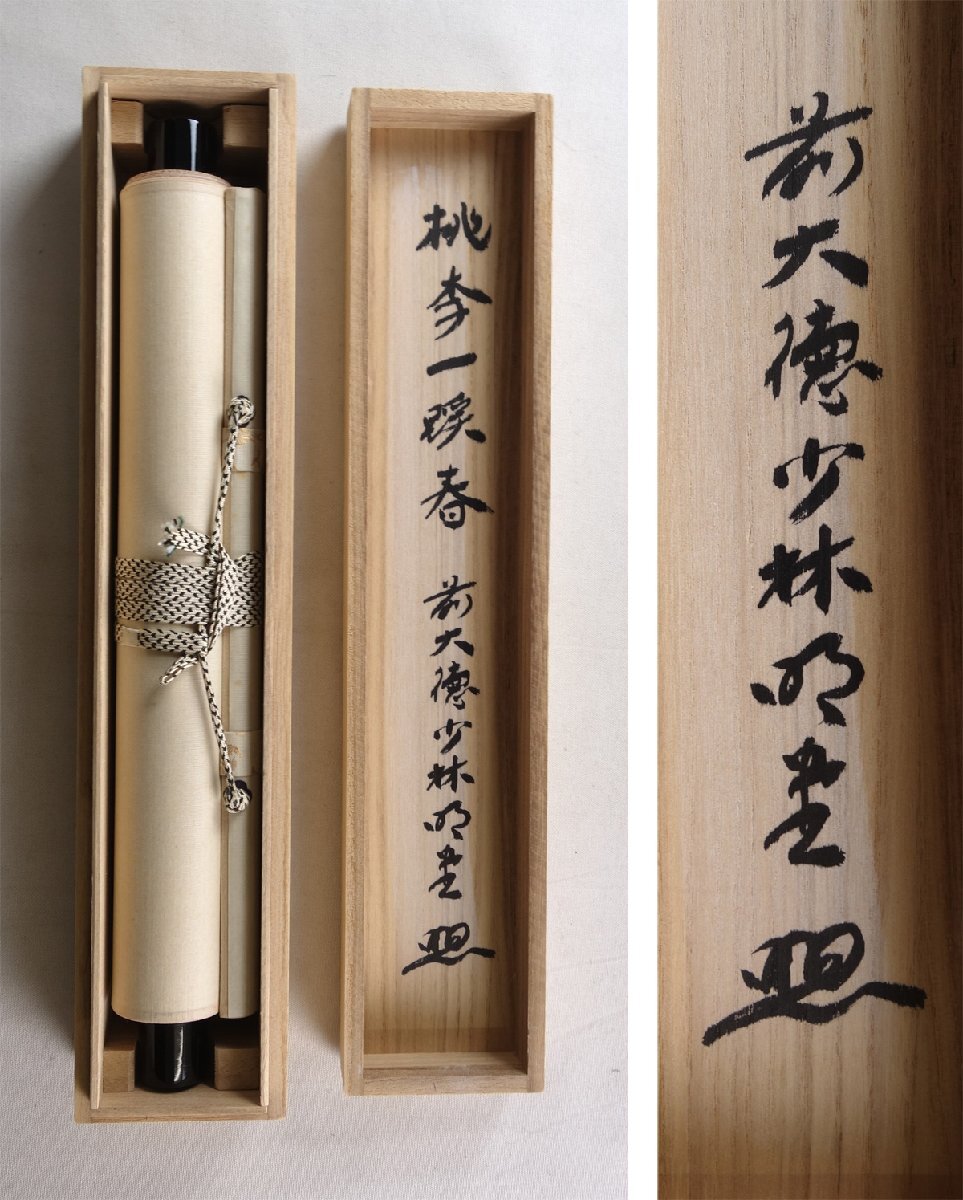 桃李一蹊春 前大徳少林明堂
前大徳少林明堂